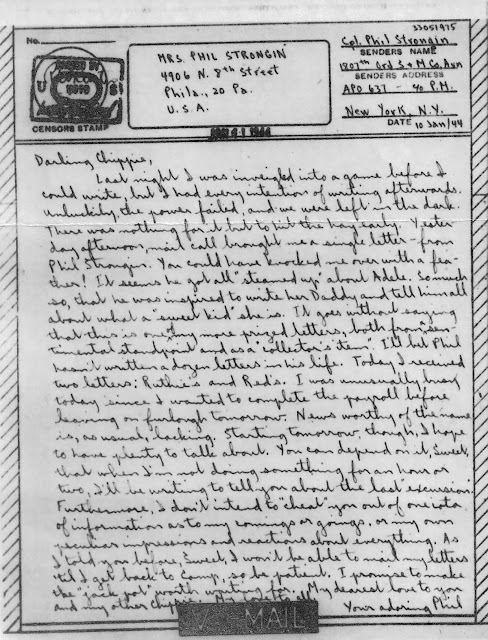 33051975
No.
PASSED BY
U S
CENSORS STAMP
MRS. PHIL STRONGIN
4906 N. 8th Street
Phila., 20 Pa.
U.S.A.
Cpl. Phil Strongin
SENDERS NAME
1807th Ord S & M. Co. Avn
SENDERS ADDRESS
APO 637 - % P.M.
New York, N.Y.
DATE 10 Jan/44
Darling Chippie,
Last night I was inveigled into a game before I
could write, but I had every intention of writing afterwards.
Unluckily, the power failed, and we were left in the dark.
There was nothing for it but to hit the hay early. Yester-
day afternoon, mail call brought me a single letter - from
Phil Strongin. You could have knocked me over with a fea-
ther! It seems he got all "steamed up" about Adele. So much
so, that he was inspired to write her Daddy and tell him all
about what a "sweet kid" she is. It goes without saying
that this is one of my more prized letters, both from sen-
timental standpoint and as a "collector's item". I'll bet Phil
hasn't written a dozen letters in his life. Today, I received
two letters; Ruthie's and Red's. I was unusually busy
today, since I wanted to complete the payroll before
leaving on furlough tomorrow. News worthy of the name
is, as usual, lacking. Starting tomorrow, though, I hope
to have plenty to talk about. You can depend on it, Sweet,
that when I'm not doing something for an hour or
two, I'll be writing to tell you about the last excursion.
Furthermore, I don't intend to "cheat" you out of one iota
of information as to my comings or goings, or my own
peculiar impressions and reactions about everything. As
I told you before, Sweet, I won't be able to mail my letters
'til I get back to camp, so be patient. I promise to make
the "jack pot" worth waiting for. My dearest love to you
and my other chippie. My love to all
Your adoring Phil
V MAIL